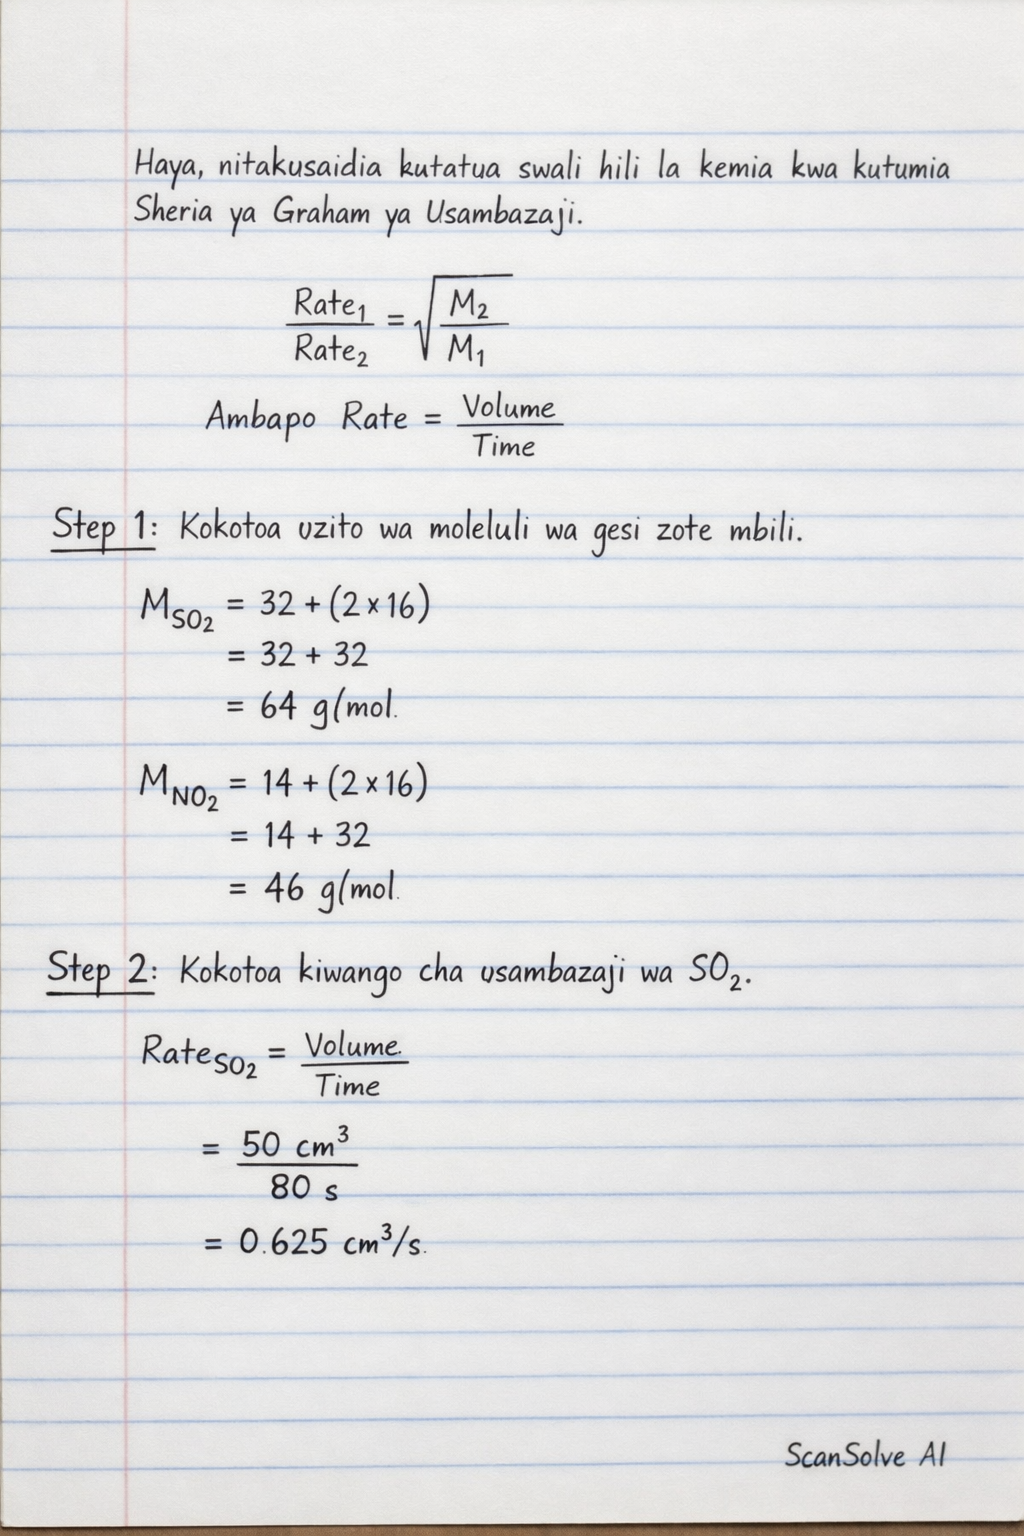 Haya, nitakusaidia kutatua swali hili la kemia kwa kutumia
Sheria ya Graham ya Usambazaji.
Rate₁/Rate₂ = √(M₂/M₁)
Ambapo Rate = Volume/Time
Step 1: Kokotoa uzito wa moleluli wa gesi zote mbili.
M_SO₂ = 32 + (2 × 16)
= 32 + 32
= 64 g/mol.
M_NO₂ = 14 + (2 × 16)
= 14 + 32
= 46 g/mol.
Step 2: Kokotoa kiwango cha usambazaji wa SO₂.
Rate_SO₂ = Volume./Time
= 50 cm³/80 s
= 0.625 cm³/s.
ScanSolve AI